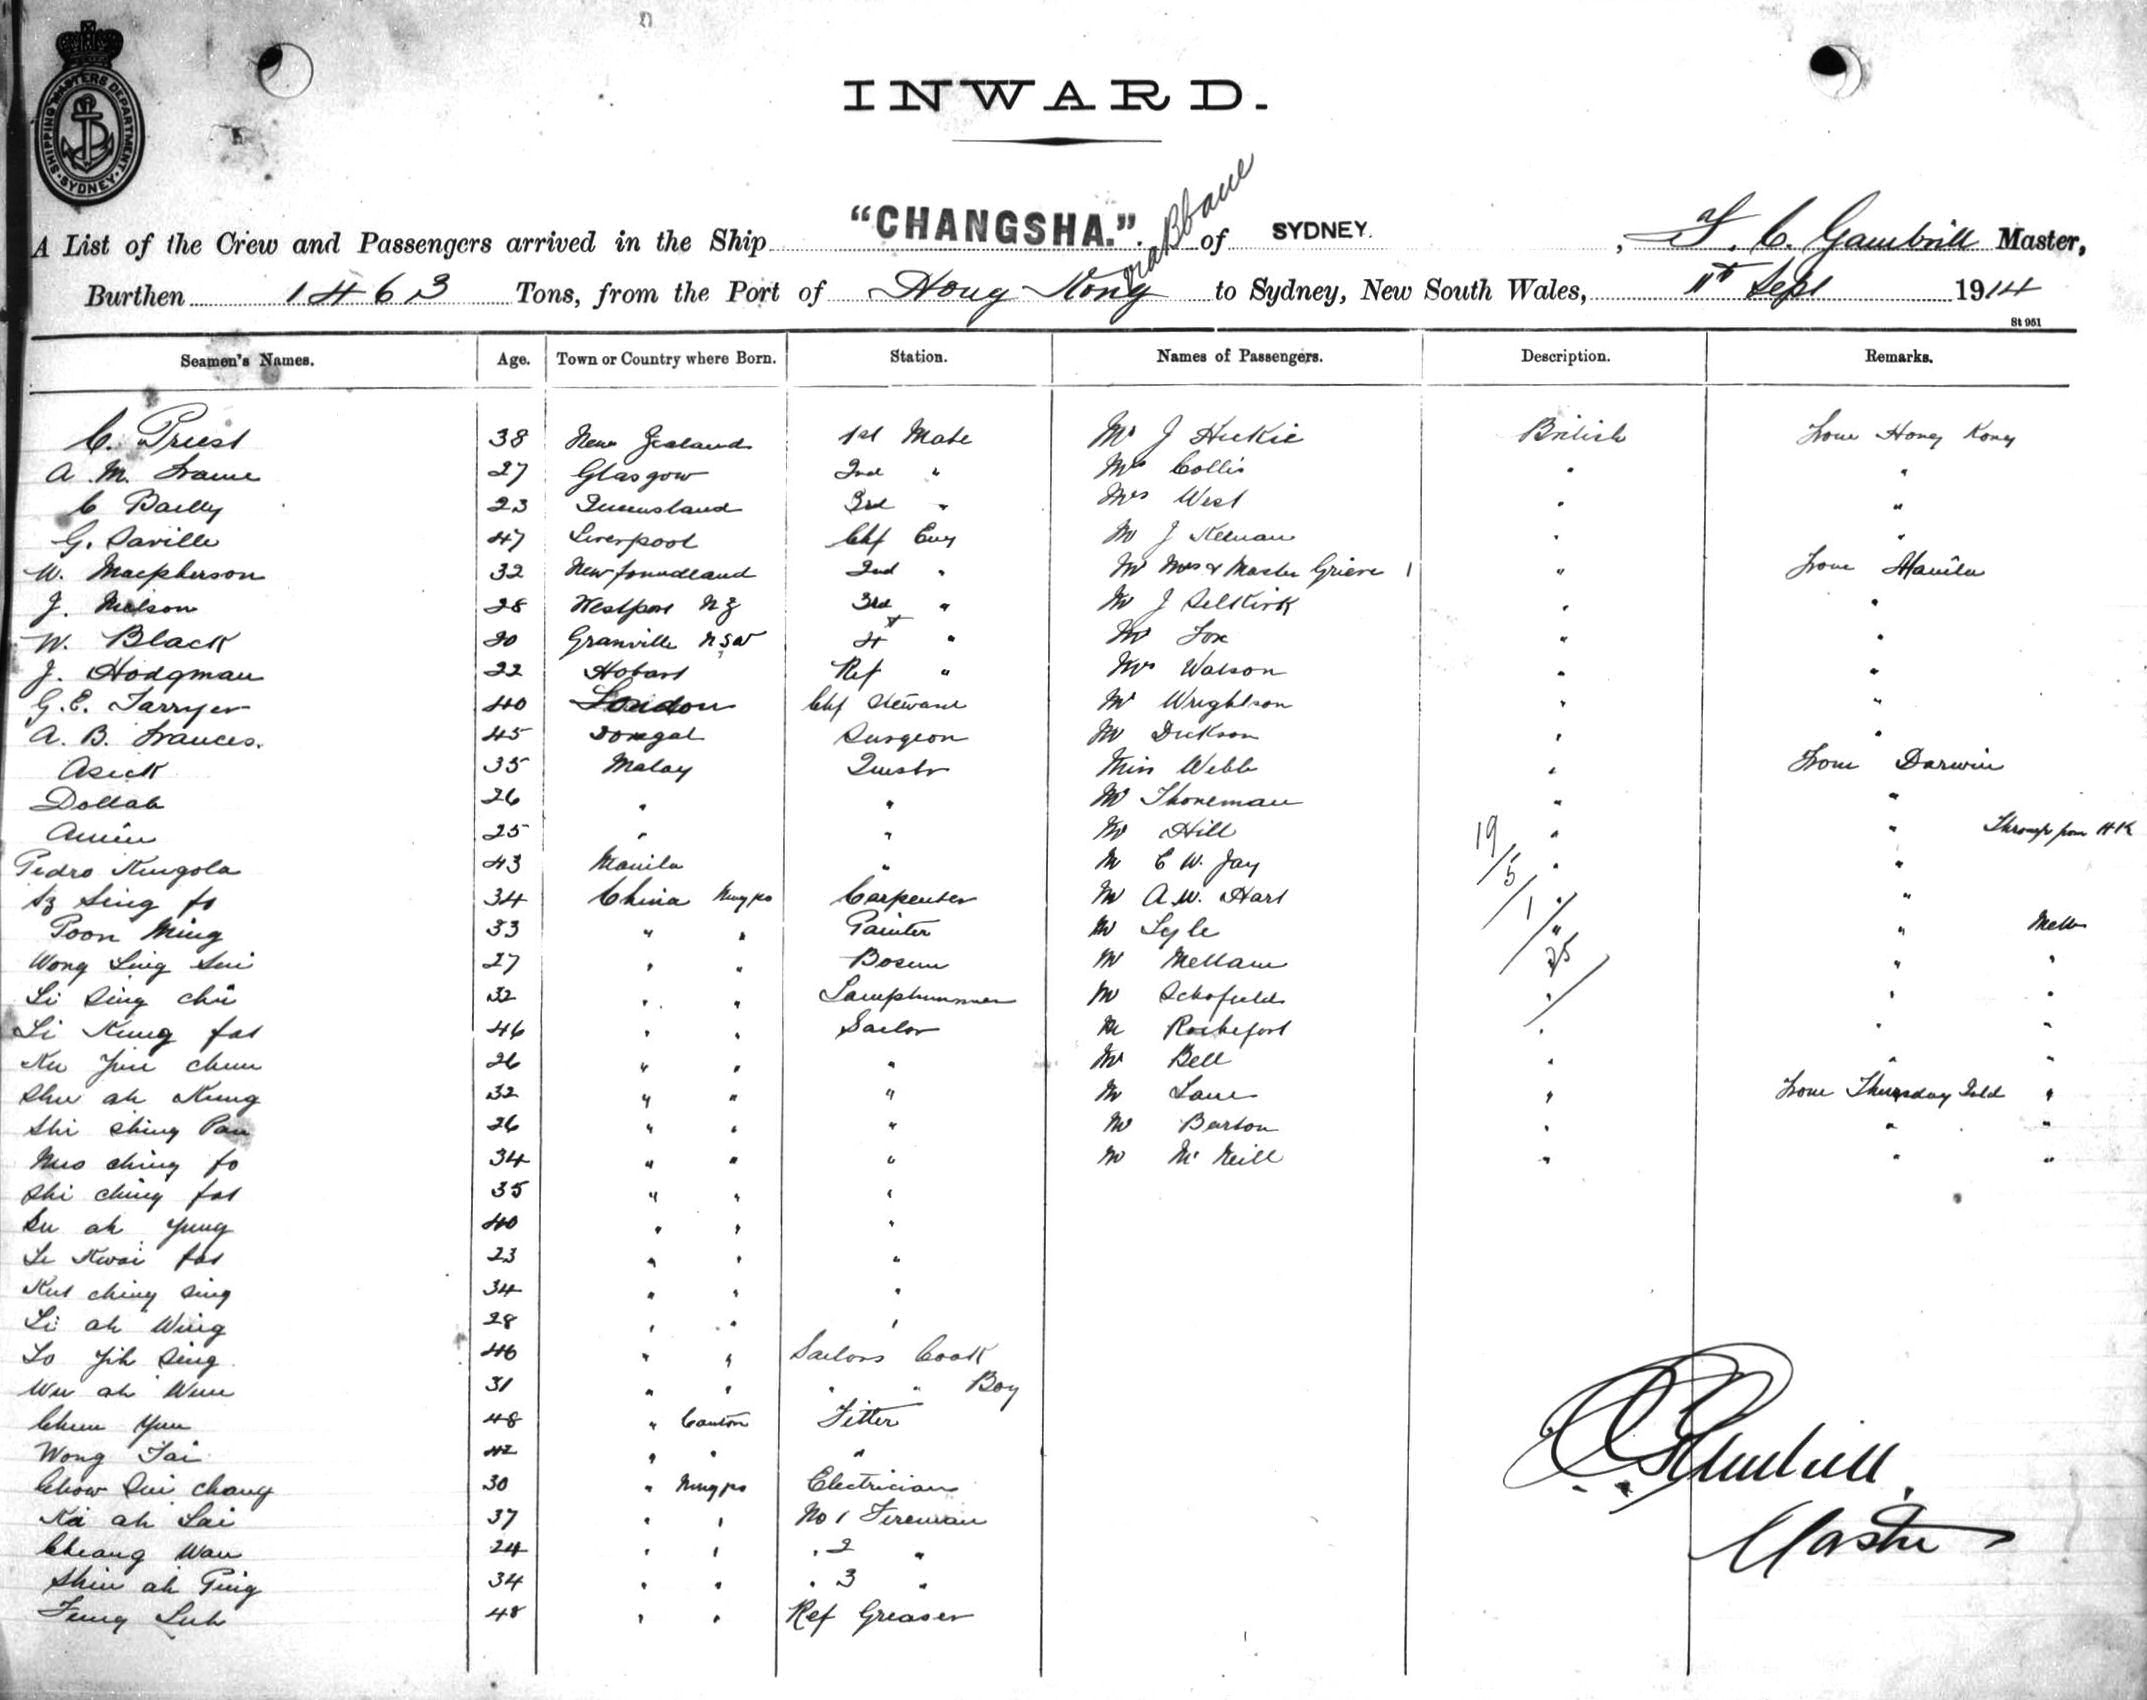 SHIPPING MASTERS DEPARTMENT · SYDNEY ·
INWARD.
A List of the Crew and Passengers arrived in the Ship "CHANGSHA." via Bbane of SYDNEY. , F. C. Gambrill Master,
Burthen 1463 Tons, from the Port of Hong Kong to Sydney, New South Wales, 11th Sept 1914
St 951
Seamen's Names. Age. Town or Country where Born. Station. Names of Passengers. Description. Remarks.
C. Priest 38 New Zealand 1st Mate Mr J Hickie British From Hong Kong
A. M. Frame 27 Glasgow 2nd " Mrs Collis " "
C Bailly 23 Queensland 3rd " Mrs West " "
G. Saville 47 Liverpool Chf Eng Mr J Keenan " "
W. Macpherson 32 Newfoundland 2nd " Mr Mrs & Master Grieve 1 " From Manila
J. Nelson 28 Westport NZ 3rd " Mr J Selkirk " "
W. Black 20 Granville NSW 4th " Mr Fox " "
J. Hodgman 22 Hobart Ref " Mrs Watson " "
G. E. Tarryer 40 London Chf Steward Mr Wrightson " "
A. B. Frances. 45 Donegal Surgeon Mr Dickson " "
Asick 35 Malay Miss Webb " From Darwin
Dollah 26 " " Mr Thoneman " "
Amin 25 " " Mr Hill 19 " " Through from HK
Pedro Kingola 43 Manila " Mr C W. Jay /5 " "
Sz Sing fo 34 China Ningpo Carpenter Mr A. W. Hart /1 " "
Poon Ming 33 " " Painter Mr Lyle / " "
Wong Ling Sui 27 " " Bosun Mr Mellam 25 " "
Li Sing Chu 32 " " Lamptrimmer Mr Schofield / " " "
Li Kung fat 46 " " Sailor Mr Rochefort " " "
Ku Yin chun 26 " " " Mr Bell " " "
Shu ah Kung 32 " " " Mr Lane " From Thursday Isld "
Shi ching Pau 26 " " " Mr Barton " " "
ching fo 34 " " " Mr McNeill " " "
Shi ching fat 35 " " "
Su ah Yung 40 " " "
Li Kwai fat 23 " " "
ching Sing 34 " " "
Li ah Wing 28 " " "
Lo Yih Sing 46 " " Sailors Cook
Wu ah Wun 31 " " " " Boy
Chun Yun 48 " Canton Fitter
Wong Tai 42 " " "
Chow Sui Chang 30 " Ningpo Electrician
Ka ah Lai 37 " " No 1 Fireman
Cheang Wan 24 " " " 2 "
Shiu ah Ping 34 " " " 3 "
Fung Luh 48 " " Ref Greaser
Gambrill
Master